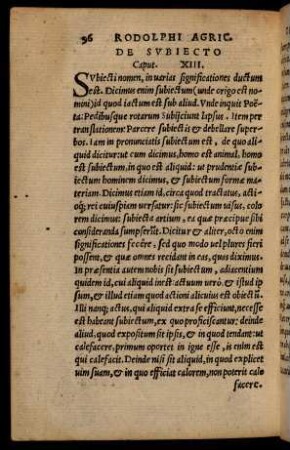 96 RODOLPHI AGRIC.
DE SVBIECTO
Caput. XIII.
SVbiecti nomen, in uarias significationes ductum
est. Dicimus enim subiectum (unde origo est no
mini) id quod iactum est sub aliud. Vnde inquit Poë
ta: Pedibusque rotarum Subijciunt lapsus. Item per
translationem: Parcere subiectis & debellare super
bos. Iam in pronunciatis subiectum est, de quo ali
quid dicitur: ut cum dicimus, homo est animal, homo
est subiectum, in quo est aliquid: ut prudentiæ sub
iectum hominem dicimus, & subiectum formæ ma
teriam. Dicimus etiam id, circa quod tractatus, acti
oq; rei cuiuspiam uersatur: sic subiectum uisus, colo
rem dicimus: subiecta artium, ea quæ præcipue sibi
consideranda sumpserūt. Dicitur & aliter, octo enim
significationes fecêre, sed quo modo uel plures fieri
possent, & quæ omnes recidant in eas, quas diximus.
In præsentia autem nobis sit subiectum, adiacentium
quidem id, cui aliquid inest: actuum uerò & istud ip
sum, & illud etiam quod actioni alicuius est obiectū.
Illi nanq; actus, qui aliquid extra se efficiunt, necesse
est habeant subiectum, ex quo proficiscantur: deinde
aliud, quod expositum sit ipsis, & in quod tendant: ut
calefacere, primum oportet in igne esse, is enim est
qui calefacit. Deinde nisi sit aliquid, in quod explicet
uim suam, & in quo efficiat calorem, non poterit cale
facere.